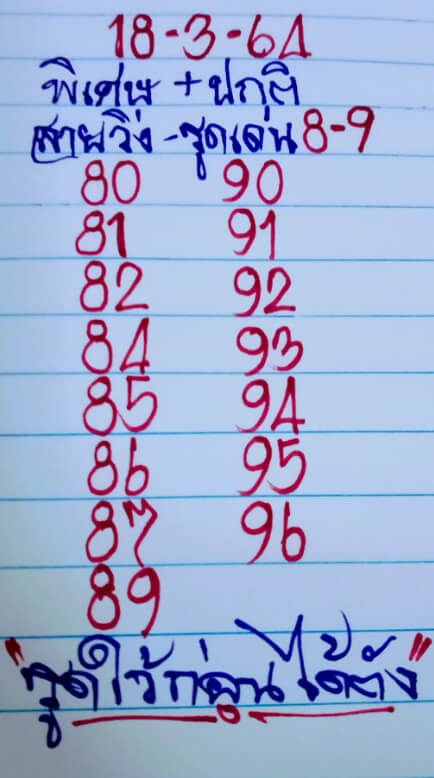 18-3-64
พิเศษ + ปกติ
สายวิ่ง - รูดเด่น 8-9
80 90
81 91
82 92
84 93
85 94
86 95
87 96
89
"รูดไว้ก่อนได้ตัง"